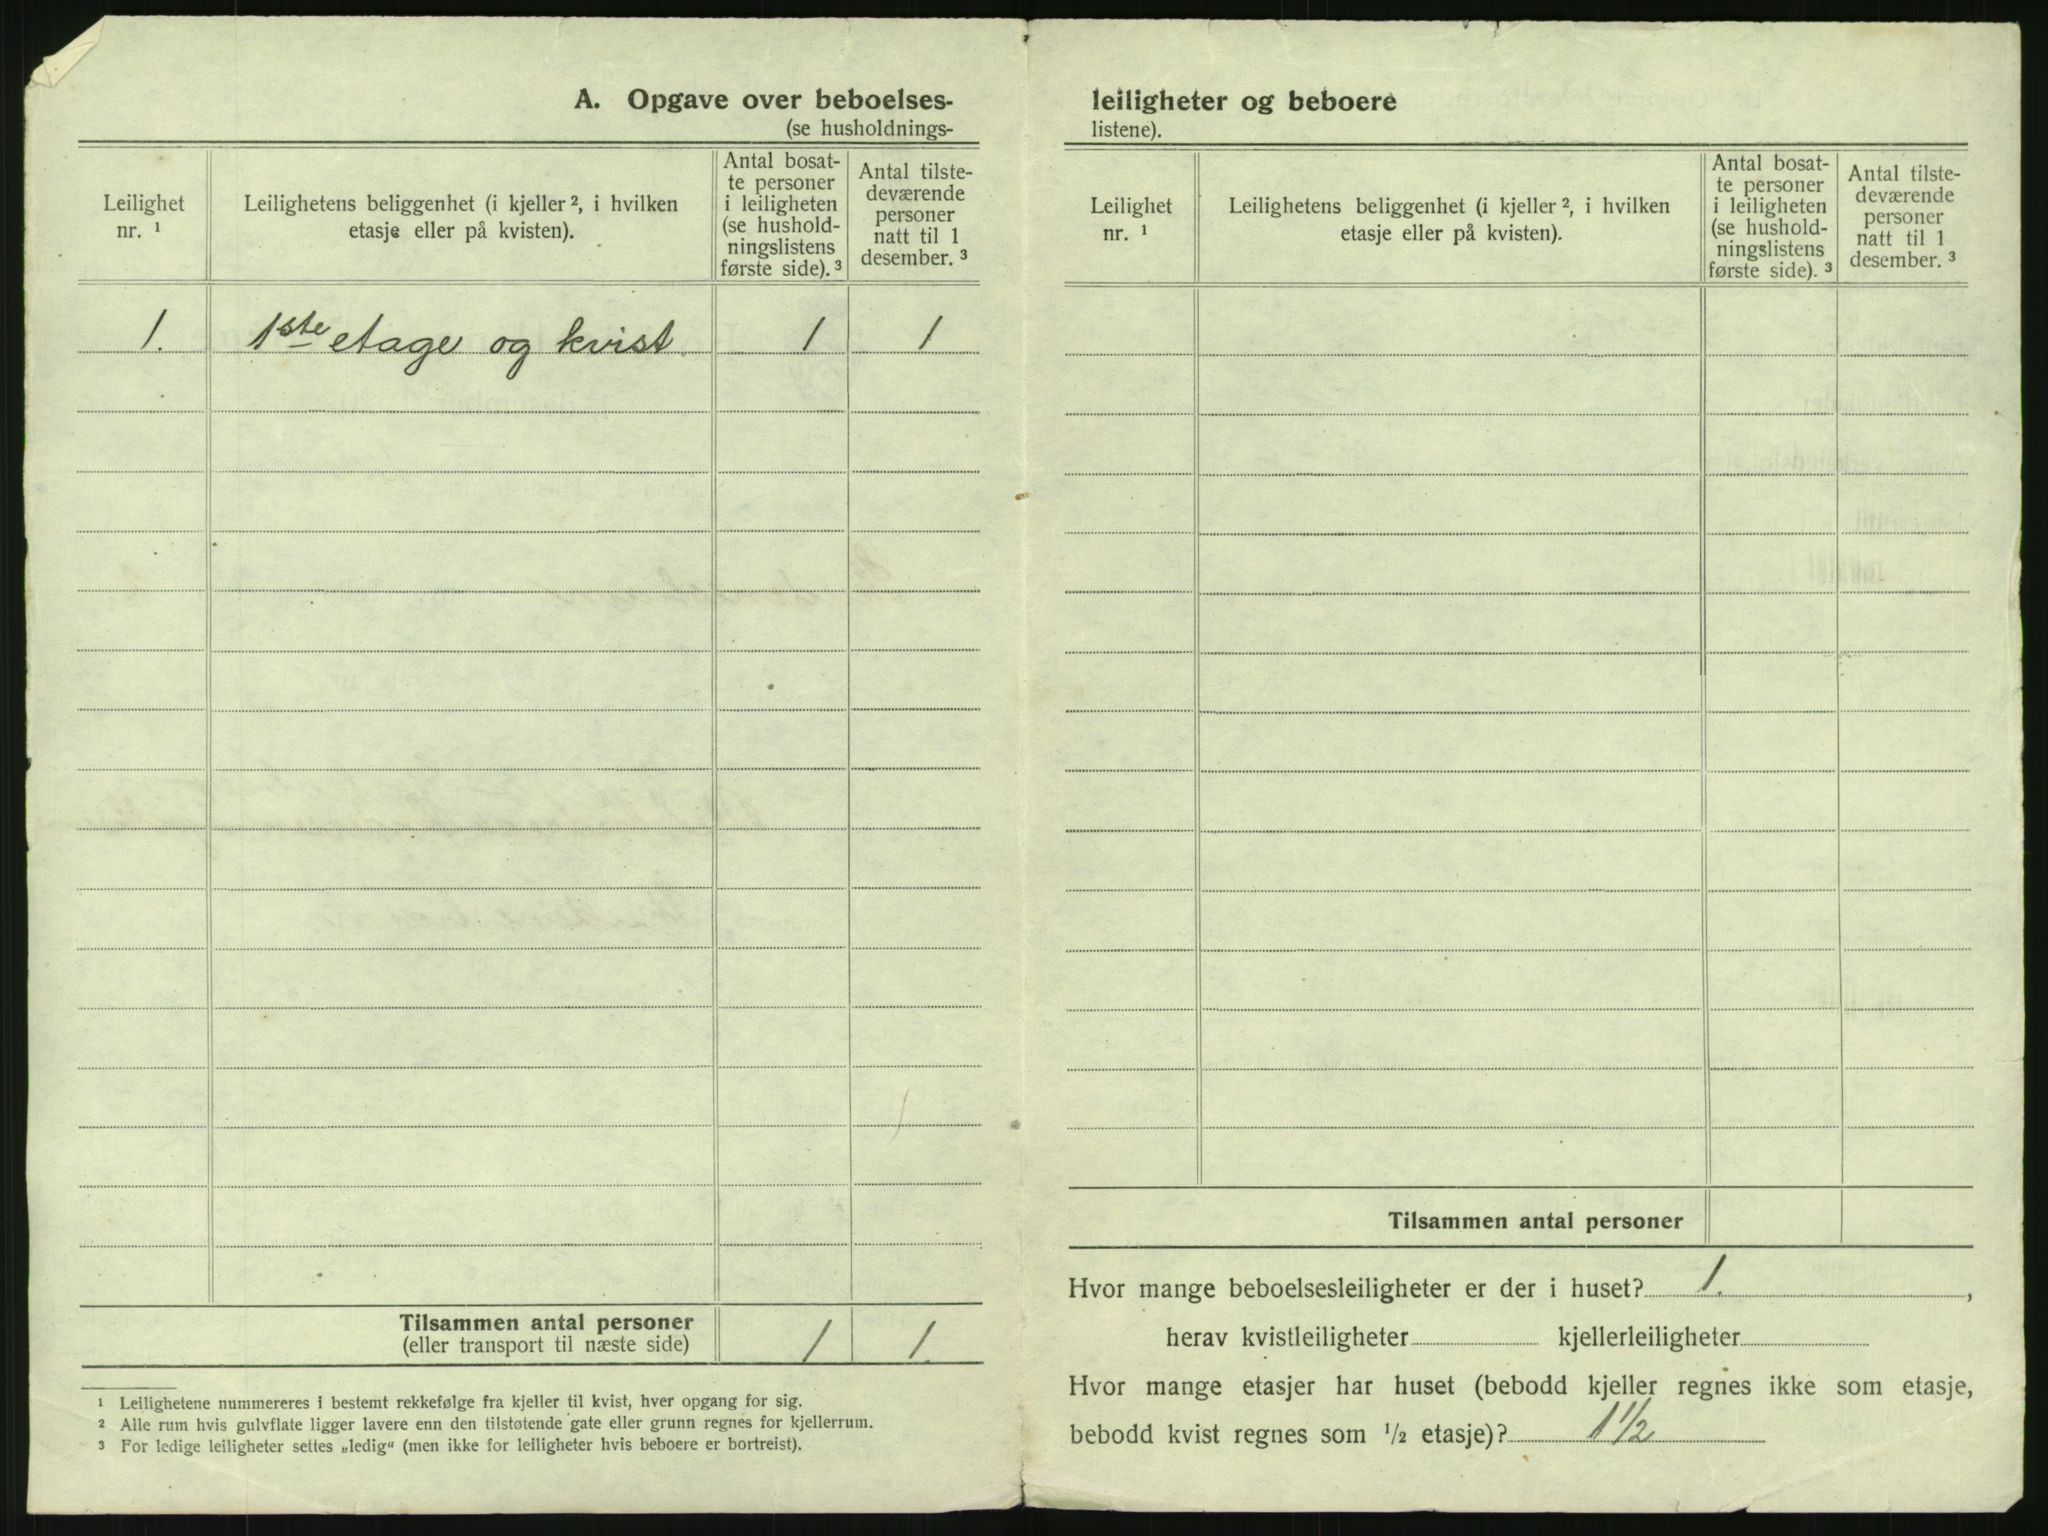 A. Opgave over beboelses-
(se husholdnings-
Leilighet nr. ¹
Leilighetens beliggenhet (i kjeller ², i hvilken etasje eller på kvisten).
Antal bosat-
te personer
i leiligheten
(se hushold-
ningslistens
første side). ³
Antal tilste-
deværende
personer
natt til 1
desember. ³
1. 1ste etage og kvist 1 1
Tilsammen antal personer
(eller transport til næste side) 1 1.
¹ Leilighetene nummereres i bestemt rekkefølge fra kjeller til kvist, hver opgang for sig.
² Alle rum hvis gulvflate ligger lavere enn den tilstøtende gate eller grunn regnes for kjellerrum.
³ For ledige leiligheter settes „ledig“ (men ikke for leiligheter hvis beboere er bortreist).
leiligheter og beboere
listene).
Leilighet nr. ¹
Leilighetens beliggenhet (i kjeller ², i hvilken etasje eller på kvisten).
Antal bosat-
te personer
i leiligheten
(se hushold-
ningslistens
første side). ³
Antal tilste-
deværende
personer
natt til 1
desember. ³
Tilsammen antal personer
Hvor mange beboelsesleiligheter er der i huset? 1.,
herav kvistleiligheter kjellerleiligheter
Hvor mange etasjer har huset (bebodd kjeller regnes ikke som etasje,
bebodd kvist regnes som ½ etasje)? 1½